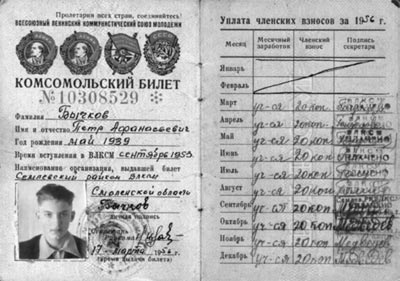 Пролетарии всех стран, соединяйтесь!
ВСЕСОЮЗНЫЙ ЛЕНИНСКИЙ КОММУНИСТИЧЕСКИЙ СОЮЗ МОЛОДЕЖИ
КОМСОМОЛЬСКИЙ БИЛЕТ
№ 10308529
Фамилия Бычков
Имя и отчество Петр Афанасьевич
Год рождения май 1939
Время вступления в ВЛКСМ сентябрь 1953
Наименование организации, выдавшей билет
РК ВЛКСМ
Смоленская область
Бычков
личная подпись
17 марта 1956 г.
(время выдачи билета)
Уплата членских взносов за 1956 г.
Месяц Месячный заработок Членский взнос Подпись секретаря
Январь
Февраль
Март уч-ся 20 коп
Апрель уч-ся 20 коп
Май уч-ся 20 коп
Июнь уч-ся 20 коп
Июль уч-ся 20 коп
Август уч-ся 20 коп
Сентябрь 20 коп
Октябрь уч-ся 20 коп
Ноябрь уч-ся 20 коп
Декабрь уч-ся 20 коп